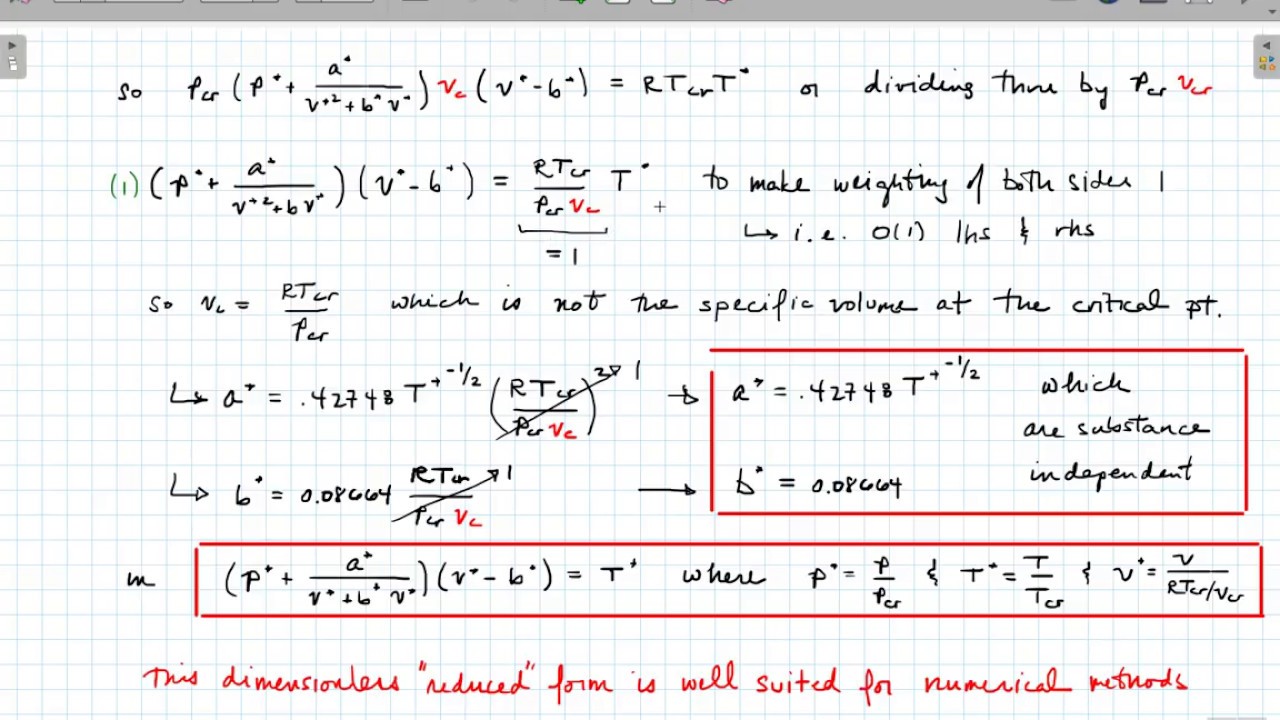 so Pcr (P* + a*/(v*² + b* v*)) vc (v* - b*) = RTcr T* or dividing thru by Pcr vcr
(1) (P* + a*/(v*² + b v*)) (v* - b*) = RTcr/(Pcr vc) T* to make weighting of both sides 1
= 1 ↳ i.e. O(1) lhs & rhs
so vc = RTcr/Pcr which is not the specific volume at the critical pt.
↳ a* = .42748 T*^(-1/2) (RTcr/(Pcr vc))² → 1 → a* = .42748 T*^(-1/2) which
are substance
independent
↳ b* = 0.08664 RTcr/(Pcr vc) → 1 → b* = 0.08664
(P* + a*/(v* + b* v*)) (v* - b*) = T* where P* = P/Pcr & T* = T/Tcr & v* = v/(RTcr/vcr)
This dimensionless "reduced" form is well suited for numerical methods